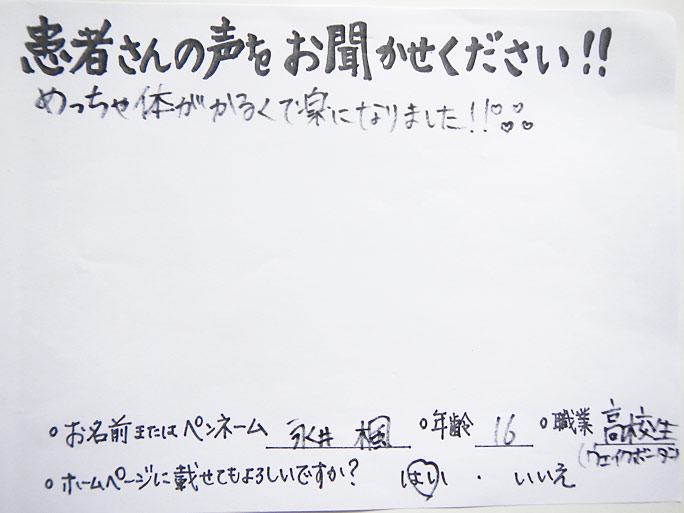 患者さんの声をお聞かせください!!
めっちゃ体がかるくて楽になりました!!♡♡♡♡
○お名前またはペンネーム 永井 楓 ○年齢 16 ○職業 高校生
(ウェイクボーダー)
○ホームページに載せてもよろしいですか? はい ・ いいえ